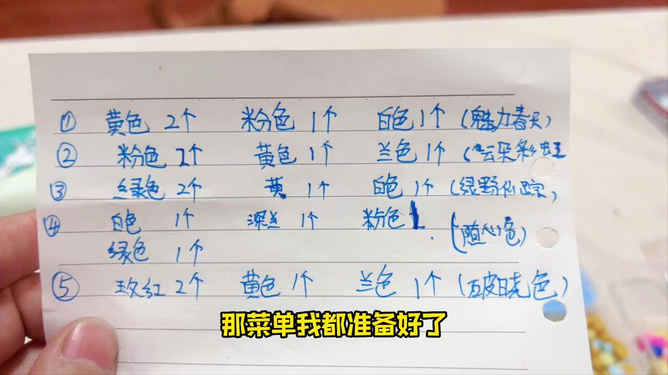 ① 黄色 2个 粉色 1个 白色 1个 (魅力春天)
② 粉色 2个 黄色 1个 兰色 1个 (云朵彩虹
③ 绿色 2个 黄 1个 白色 1个 (绿野仙踪)
④ 白色 1个 深兰 1个 粉色 1 (随心色)
绿色 1个
⑤ 玫红 2个 黄色 1个 兰色 1个 (五皮日尧色)
那菜单我都准备好了